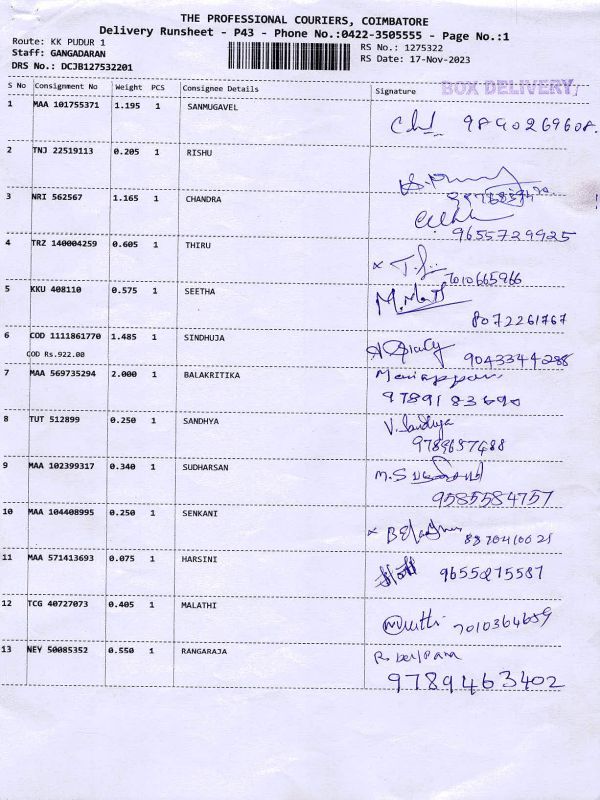 THE PROFESSIONAL COURIERS, COIMBATORE
Delivery Runsheet - P43 - Phone No.:0422-3505555 - Page No.:1
Route: KK PUDUR 1 RS No.: 1275322
Staff: GANGADARAN RS Date: 17-Nov-2023
DRS No.: DCJB127532201
S No Consignment No Weight PCS Consignee Details Signature BOX DELIVERY
1 MAA 101755371 1.195 1 SANMUGAVEL 9890269608.
2 TNJ 22519113 0.205 1 RISHU
3 NRI 562567 1.165 1 CHANDRA
9655729925
4 TRZ 140004259 0.605 1 THIRU
7010665966
5 KKU 408110 0.575 1 SEETHA
8072261767
6 COD 1111861770 1.485 1 SINDHUJA
COD Rs.922.00 9043344288
7 MAA 569735294 2.000 1 BALAKRITIKA Mariappan
9789183690
8 TUT 512899 0.250 1 SANDHYA V. Sandhya
9789657488
9 MAA 102399317 0.340 1 SUDHARSAN M.S
9585584757
10 MAA 104408995 0.250 1 SENKANI
8870410021
11 MAA 571413693 0.075 1 HARSINI 9655875587
12 TCG 40727073 0.405 1 MALATHI 7010364659
13 NEY 50085352 0.550 1 RANGARAJA
9789463402